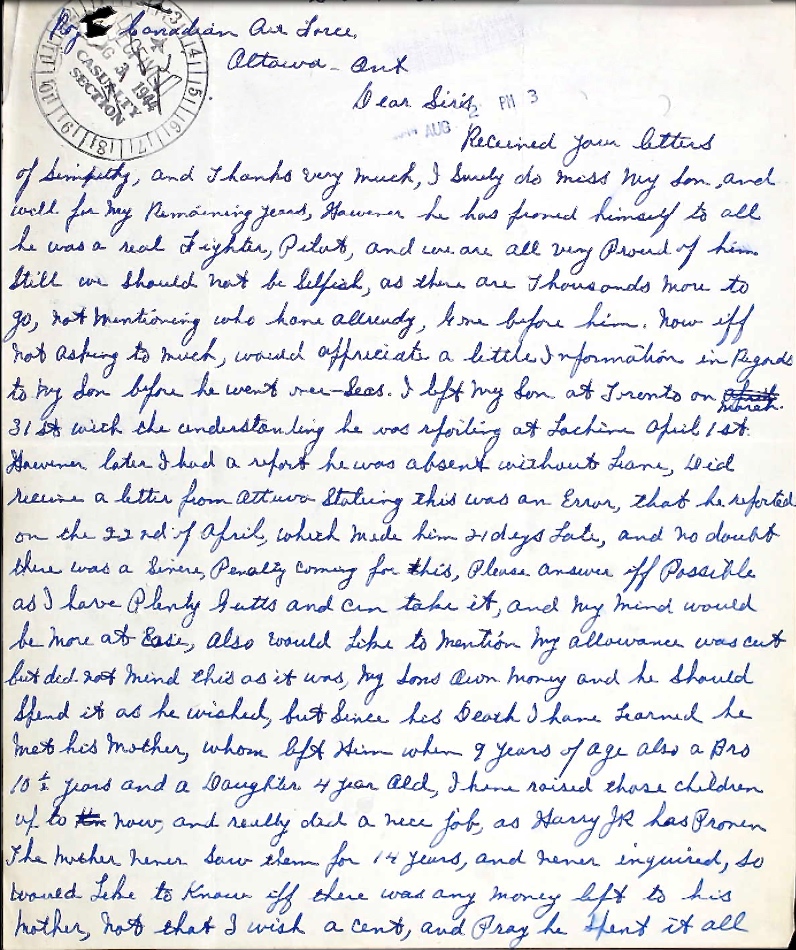 Canadian Air Force,
Ottawa - Ont
CASUALTY
SECTION
AUG 3 1944
Dear Sirs,
AUG 2 PM 3
Received your letters
of Simpethy, and Thanks very much, I Surely do miss My Son, and
will for My Remaining years, However he has proved himself to all
he was a real Fighter, Pilot, and we are all very Proud of him
Still we should not be Selfish, as there are Thousands more to
go, not Mentioning who have allready, Gone before him. Now iff
not asking to much, would appriciate a little Information in Regards
to My Son before he went over-Seas. I left My Son at Toronto on April March.
31st with the understanding he was repoiting at Lachine April 1st.
However later I had a report he was absent without Leave, Did
receive a letter from Attawa Stateing this was an Error, that he reported
on the 22nd of April, which Made him 21 days Late, and no doubt
there was a Sivere, Penalty coming for this, Please answer iff Possible
as I have Plenty Gutts and can take it, and My Mind would
be More at Ease, also would Like to Mention My allowance was cut
but did not Mind this as it was, My Sons Own Money and he should
Spend it as he wished, but Since his Death I have Learned he
Met his Mother, whom left Him when 9 years of age also a Bro
10½ years and a Daughter 4 year Old, I have raised those children
up to now, and really did a nice job, as Harry JR has Proven
The Mother never Saw them for 14 years, and never inquired, So
would Like to Know iff there was any Money left to his
Mother, Not that I wish a cent, and Pray he Spent it all